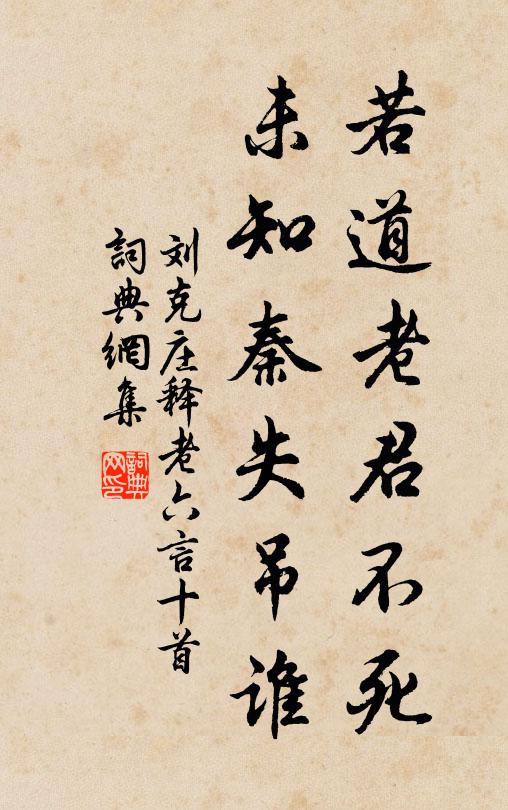 若道老君不死
未知秦失吊谁
刘克庄释老六言十首
詞典網集
詞典網印